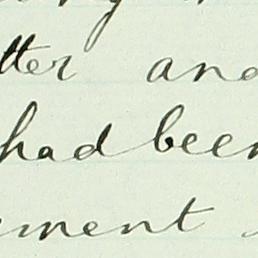 tter and
had been
ement